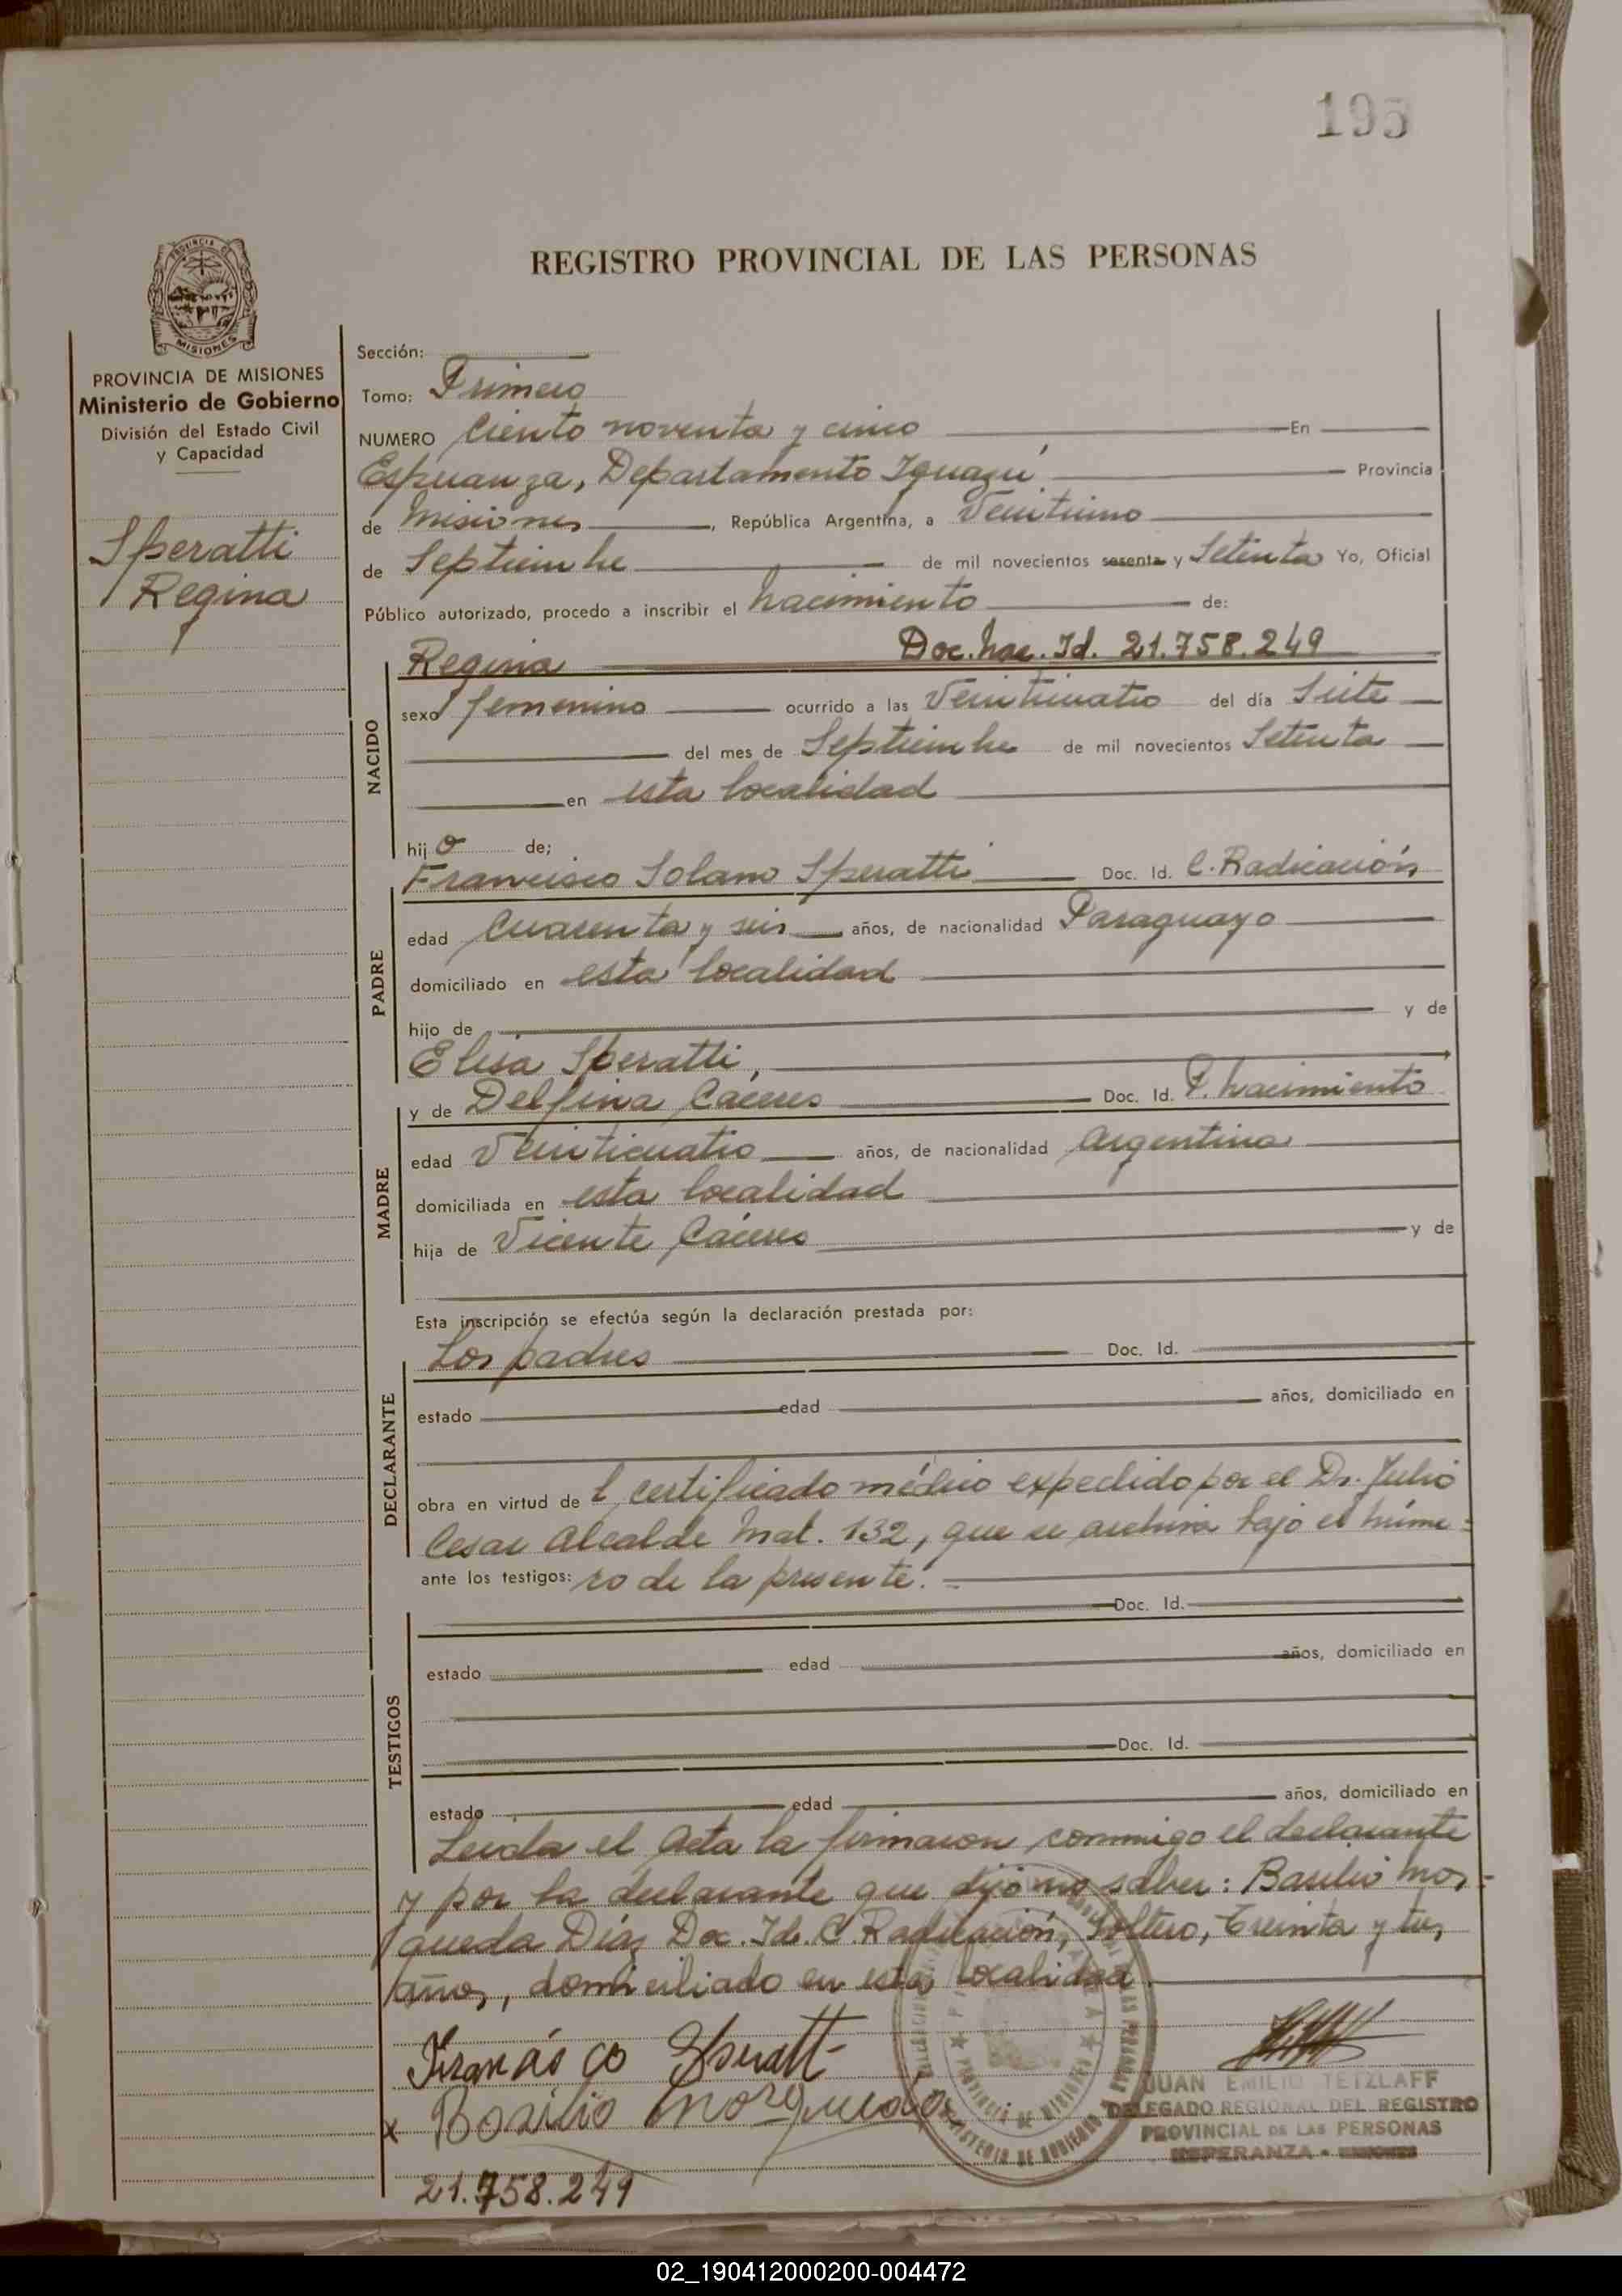 195
REGISTRO PROVINCIAL DE LAS PERSONAS
PROVINCIA DE MISIONES
Ministerio de Gobierno
División del Estado Civil
y Capacidad
Speratti
Regina
Sección:
Tomo: Primero
NUMERO Ciento noventa y cinco En
Esperanza, Departamento Iguazú Provincia
de Misiones, República Argentina, a Veinticinco
de Septiembre de mil novecientos sesenta y Setenta Yo, Oficial
Público autorizado, procedo a inscribir el Nacimiento de:
Regina Doc. Nac. Id. 21.758.249
NACIDO
sexo femenino ocurrido a las Veinticuatro del día Siete
del mes de Septiembre de mil novecientos Setenta
en esta localidad
hij o de;
Francisco Solano Speratti Doc. Id. C. Radicación
PADRE
edad Cuarenta y seis años, de nacionalidad Paraguayo
domiciliado en esta localidad
hijo de y de
Elisa Speratti,
y de Delfina Cáceres Doc. Id. P. Nacimiento
MADRE
edad Veinticuatro años, de nacionalidad Argentina
domiciliada en esta localidad
hija de Vicente Cáceres y de
Esta inscripción se efectúa según la declaración prestada por:
Los padres Doc. Id.
DECLARANTE
estado edad años, domiciliado en
obra en virtud de l certificado médico expedido por el Dr. Julio
Cesar Alcalde Mat. 132, que se archiva bajo el núme=
ante los testigos: ro de la presente.
Doc. Id.
TESTIGOS
estado edad años, domiciliado en
Doc. Id.
estado edad años, domiciliado en
Leída el Acta la firmaron conmigo el declarante
y por la declarante que dijo no saber: Basilio Mos-
queda Díaz Doc. Id. C. Radicación, Soltero, Treinta y tres
años, domiciliado en esta localidad.
Speratt
x Basilio Mosqueda
JUAN EMILIO TETZLAFF
DELEGADO REGIONAL DEL REGISTRO
PROVINCIAL DE LAS PERSONAS
ESPERANZA - MISIONES
21.758.249
02_190412000200-004472